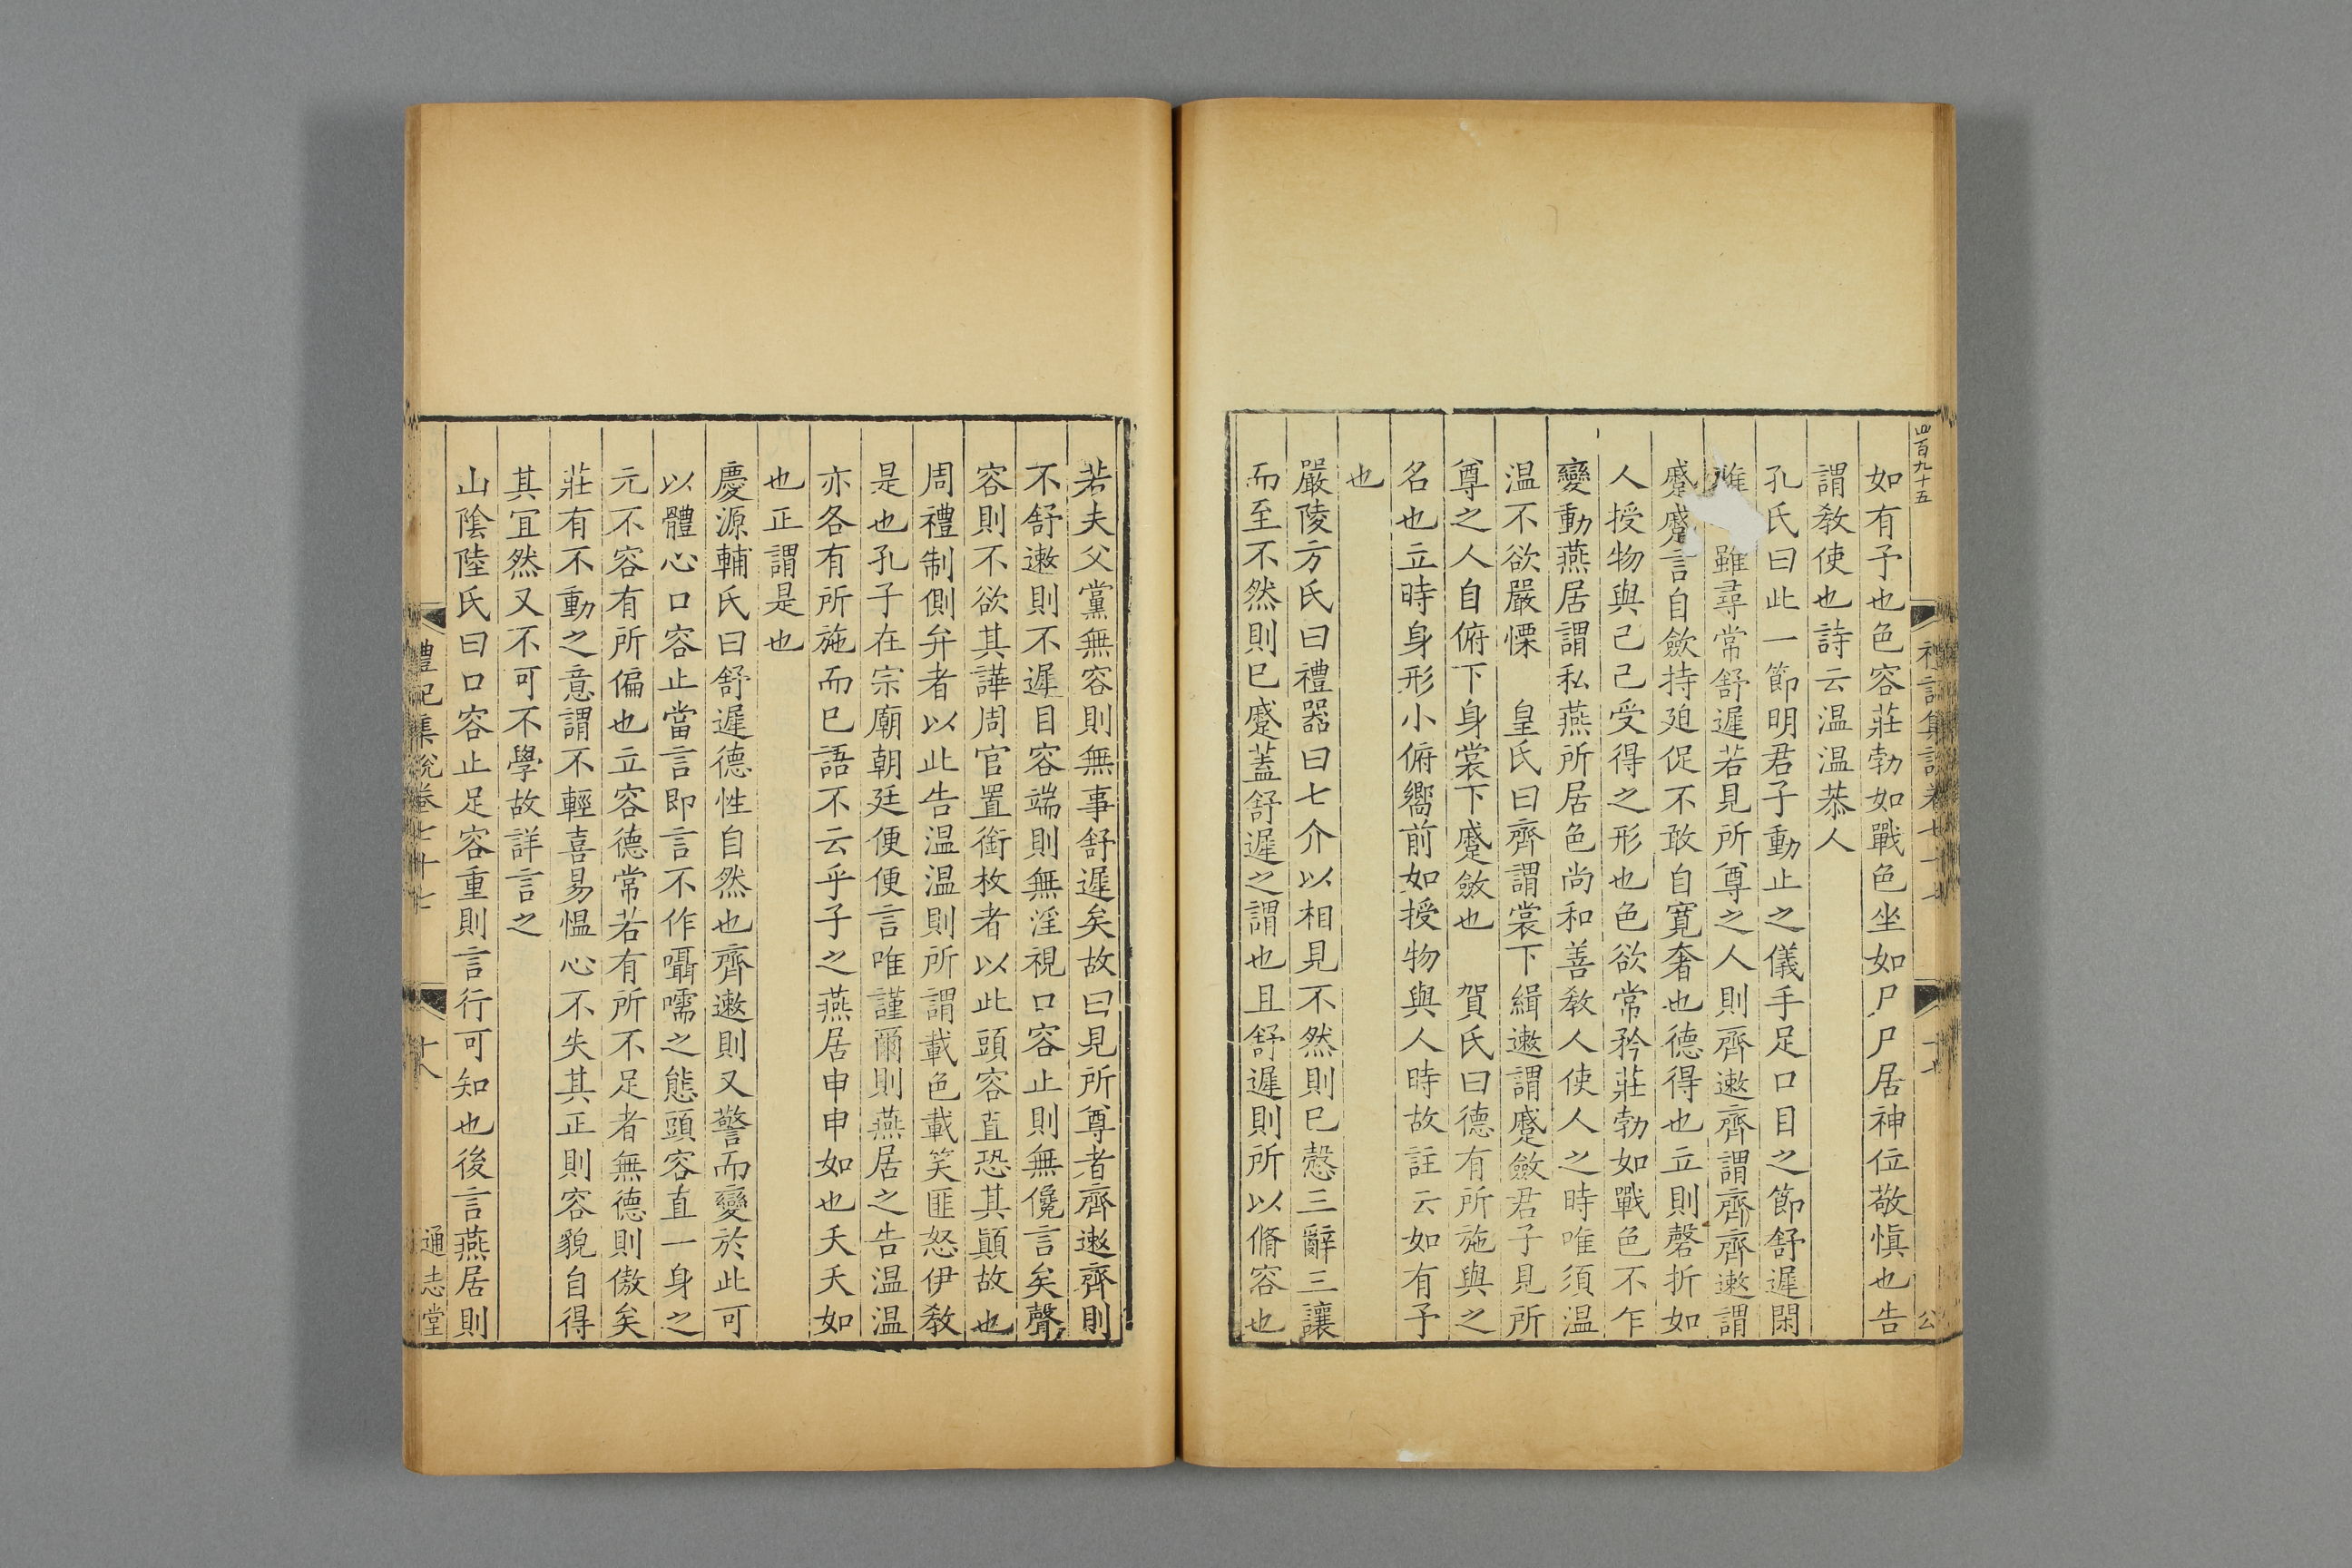 四百九十五
如有予也色容莊勃如戰色坐如尸尸居神位敬愼也告
謂敎使也詩云温温恭人
孔氏曰此一節明君子動止之儀手足口目之節舒遲閑
雖尋常舒遲若見所尊之人則齊遬齊謂齊齊遬謂
蹙蹙言自斂持廹促不敢自寬奢也德得也立則磬折如
人授物與己己受得之形也色欲常矜莊勃如戰色不乍
變動燕居謂私燕所居色尚和善敎人使人之時唯須温
温不欲嚴慄　皇氏曰齊謂裳下緝遬謂蹙斂君子見所
尊之人自俯下身裳下蹙斂也　賀氏曰德有所施與之
名也立時身形小俯嚮前如授物與人時故註云如有予
也
嚴陵方氏曰禮器曰七介以相見不然則巳慤三辭三讓
而至不然則巳蹙蓋舒遲之謂也且舒遲則所以脩容也
禮記集說卷七十七
十七
公
若夫父黨無容則無事舒遲矣故曰見所尊者齊遬齊則
不舒遬則不遲目容端則無淫視口容止則無儳言矣聲
容則不欲其譁周官置銜枚者以此頭容直恐其顚故也
周禮制側弁者以此告温温則所謂載色載笑匪怒伊敎
是也孔子在宗廟朝廷便便言唯謹爾則燕居之告温温
亦各有所施而巳語不云乎子之燕居申申如也夭夭如
也正謂是也
慶源輔氏曰舒遲德性自然也齊遬則又警而變於此可
以體心口容止當言即言不作囁嚅之態頭容直一身之
元不容有所偏也立容德常若有所不足者無德則傲矣
莊有不動之意謂不輕喜易愠心不失其正則容貌自得
其冝然又不可不學故詳言之
山隂陸氏曰口容止足容重則言行可知也後言燕居則
禮記集說卷七十七
十八
通志堂